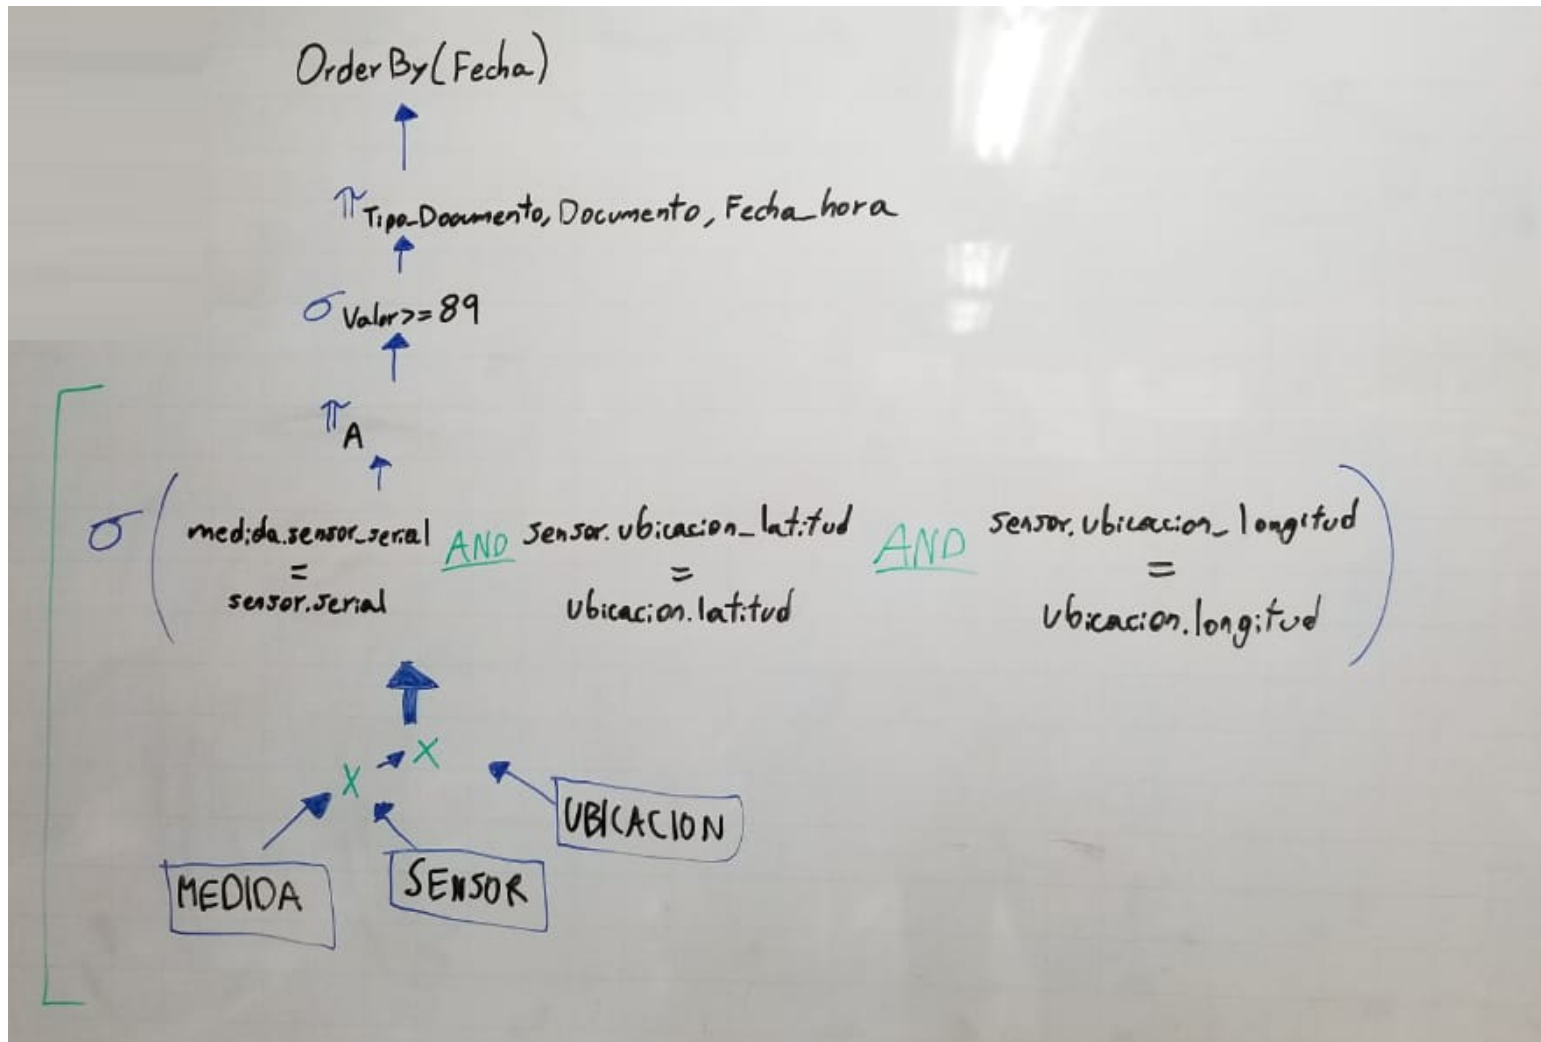 OrderBy(Fecha)
π Tipo_Documento, Documento, Fecha_hora
σ Valor>=89
π A
σ ( medida.sensor_serial AND sensor.ubicacion_latitud AND sensor.ubicacion_longitud )
= = =
sensor.serial ubicacion.latitud ubicacion.longitud
X X
UBICACION
MEDIDA SENSOR